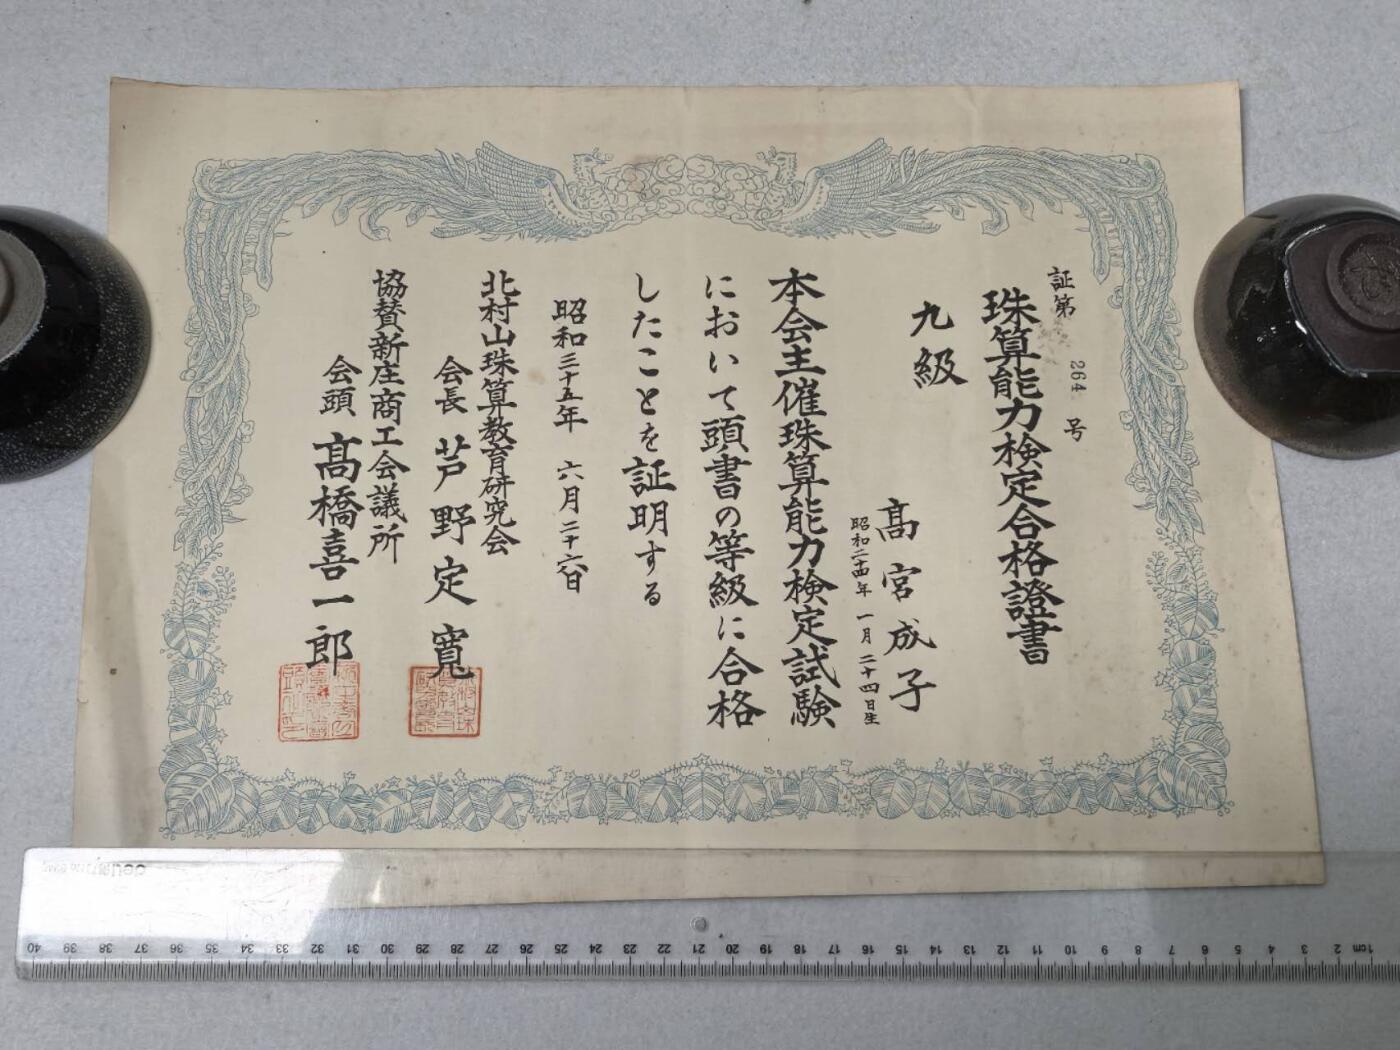 証第 264 号
珠算能力検定合格證書
九級
髙宮成子
昭和二十四年 一月二十四日生
本会主催珠算能力検定試験
において頭書の等級に合格
したことを証明する
昭和三十五年 六月二十六日
北村山珠算教育研究会
会長 芦野定寛
協賛新庄商工会議所
会頭 髙橋喜一郎
deli
40 39 38 37 36 35 34 33 32 31 30 29 28 27 26 25 24 23 22 21 20 19 18 17 16 15 14 13 12 11 10 9 8 7 6 5 4 3 2 1cm